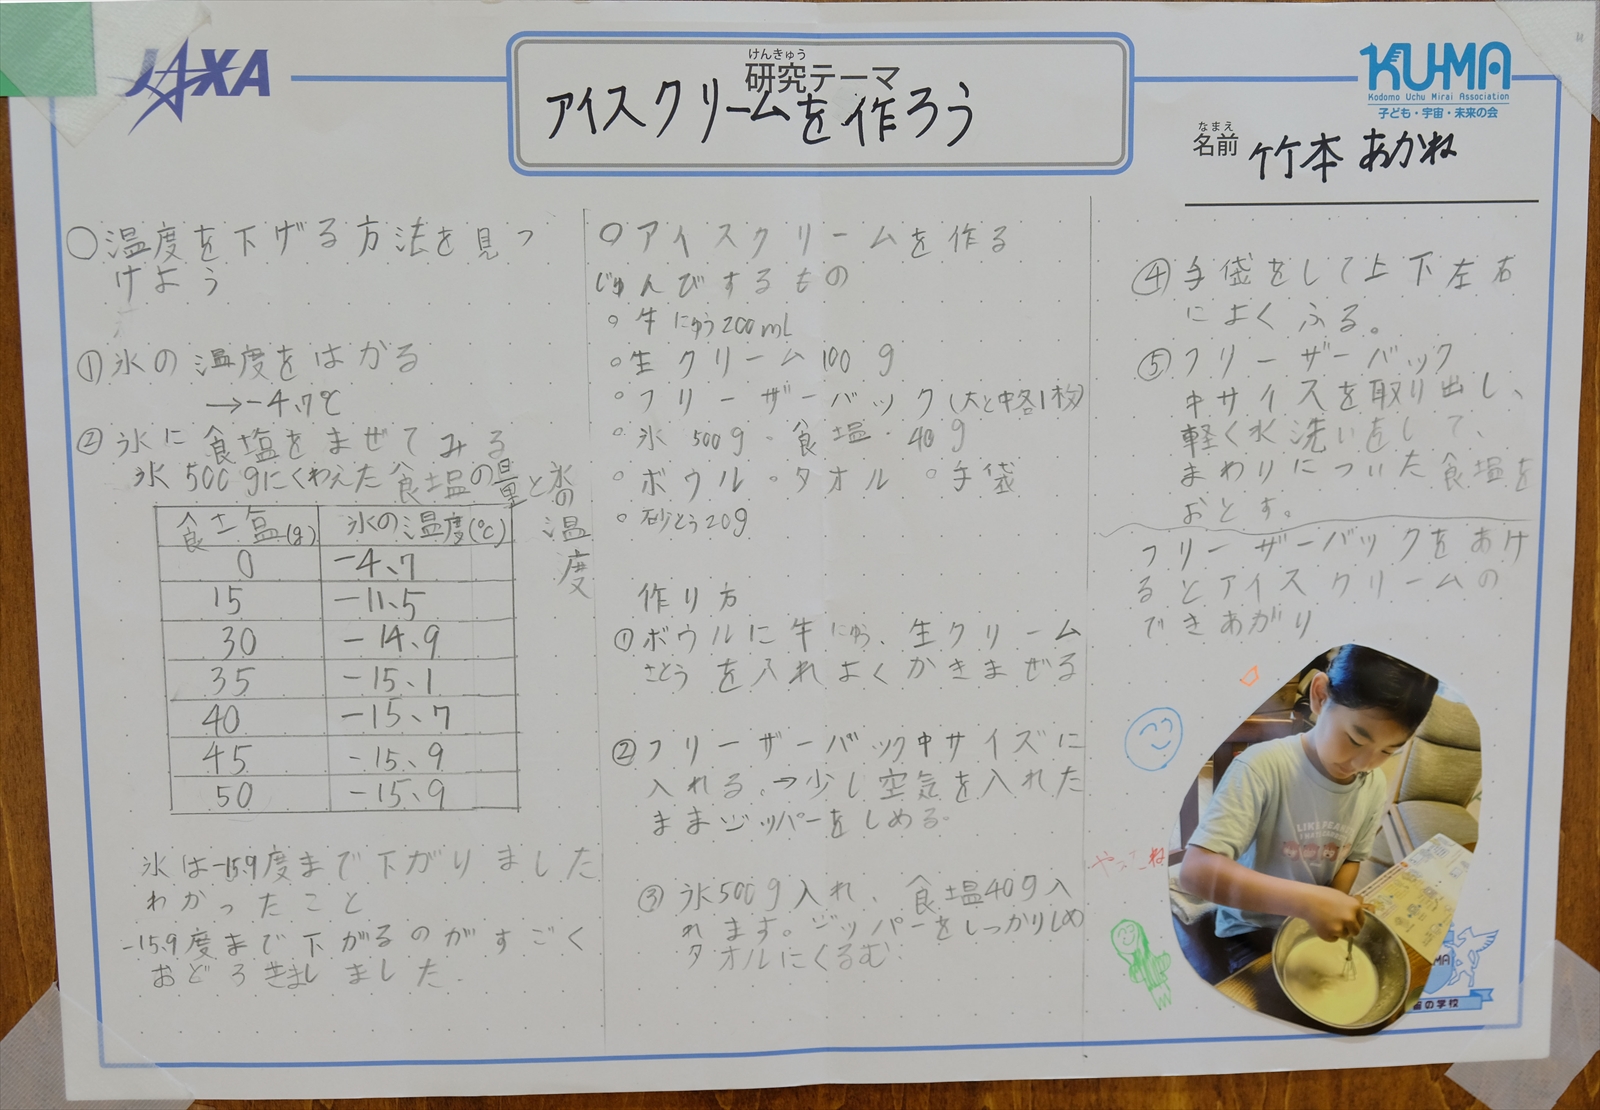 JAXA
けんきゅう
研究テーマ
アイスクリームを作ろう
KU-MA
Kodomo Uchu Mirai Association
子ども・宇宙・未来の会
なまえ
名前
竹本 あかね
○温度を下げる方法を見つ
けよう
①氷の温度をはかる
→-4.7℃
②氷に食塩をまぜてみる
氷500gにくわえた食塩の量と氷の
温度
食塩(g) 氷の温度(℃)
0 -4.7
15 -11.5
30 -14.9
35 -15.1
40 -15.7
45 -15.9
50 -15.9
氷は-15.9度まで下がりました
わかったこと
-15.9度まで下がるのがすごく
おどろきましました
○アイスクリームを作る
じゅんびするもの
○牛にゅう200mL
○生クリーム100g
○フリーザーバック(大と中各1枚)
○氷500g・食塩・40g
○ボウル・タオル○手袋
○砂とう20g
作り方
①ボウルに牛にゅう、生クリーム
さとうを入れよくかきまぜる
②フリーザーバック中サイズに
入れる。→少し空気を入れた
ままジッパーをしめる。
③氷500g入れ、食塩40g入
れます。ジッパーをしっかりしめ
タオルにくるむ
④手袋をして上下左右
によくふる。
⑤フリーザーバック
中サイズを取り出し、
軽く水洗いをして、
まわりについた食塩を
おとす。
フリーザーバックをあけ
るとアイスクリームの
できあがり
やったね
宙の学校